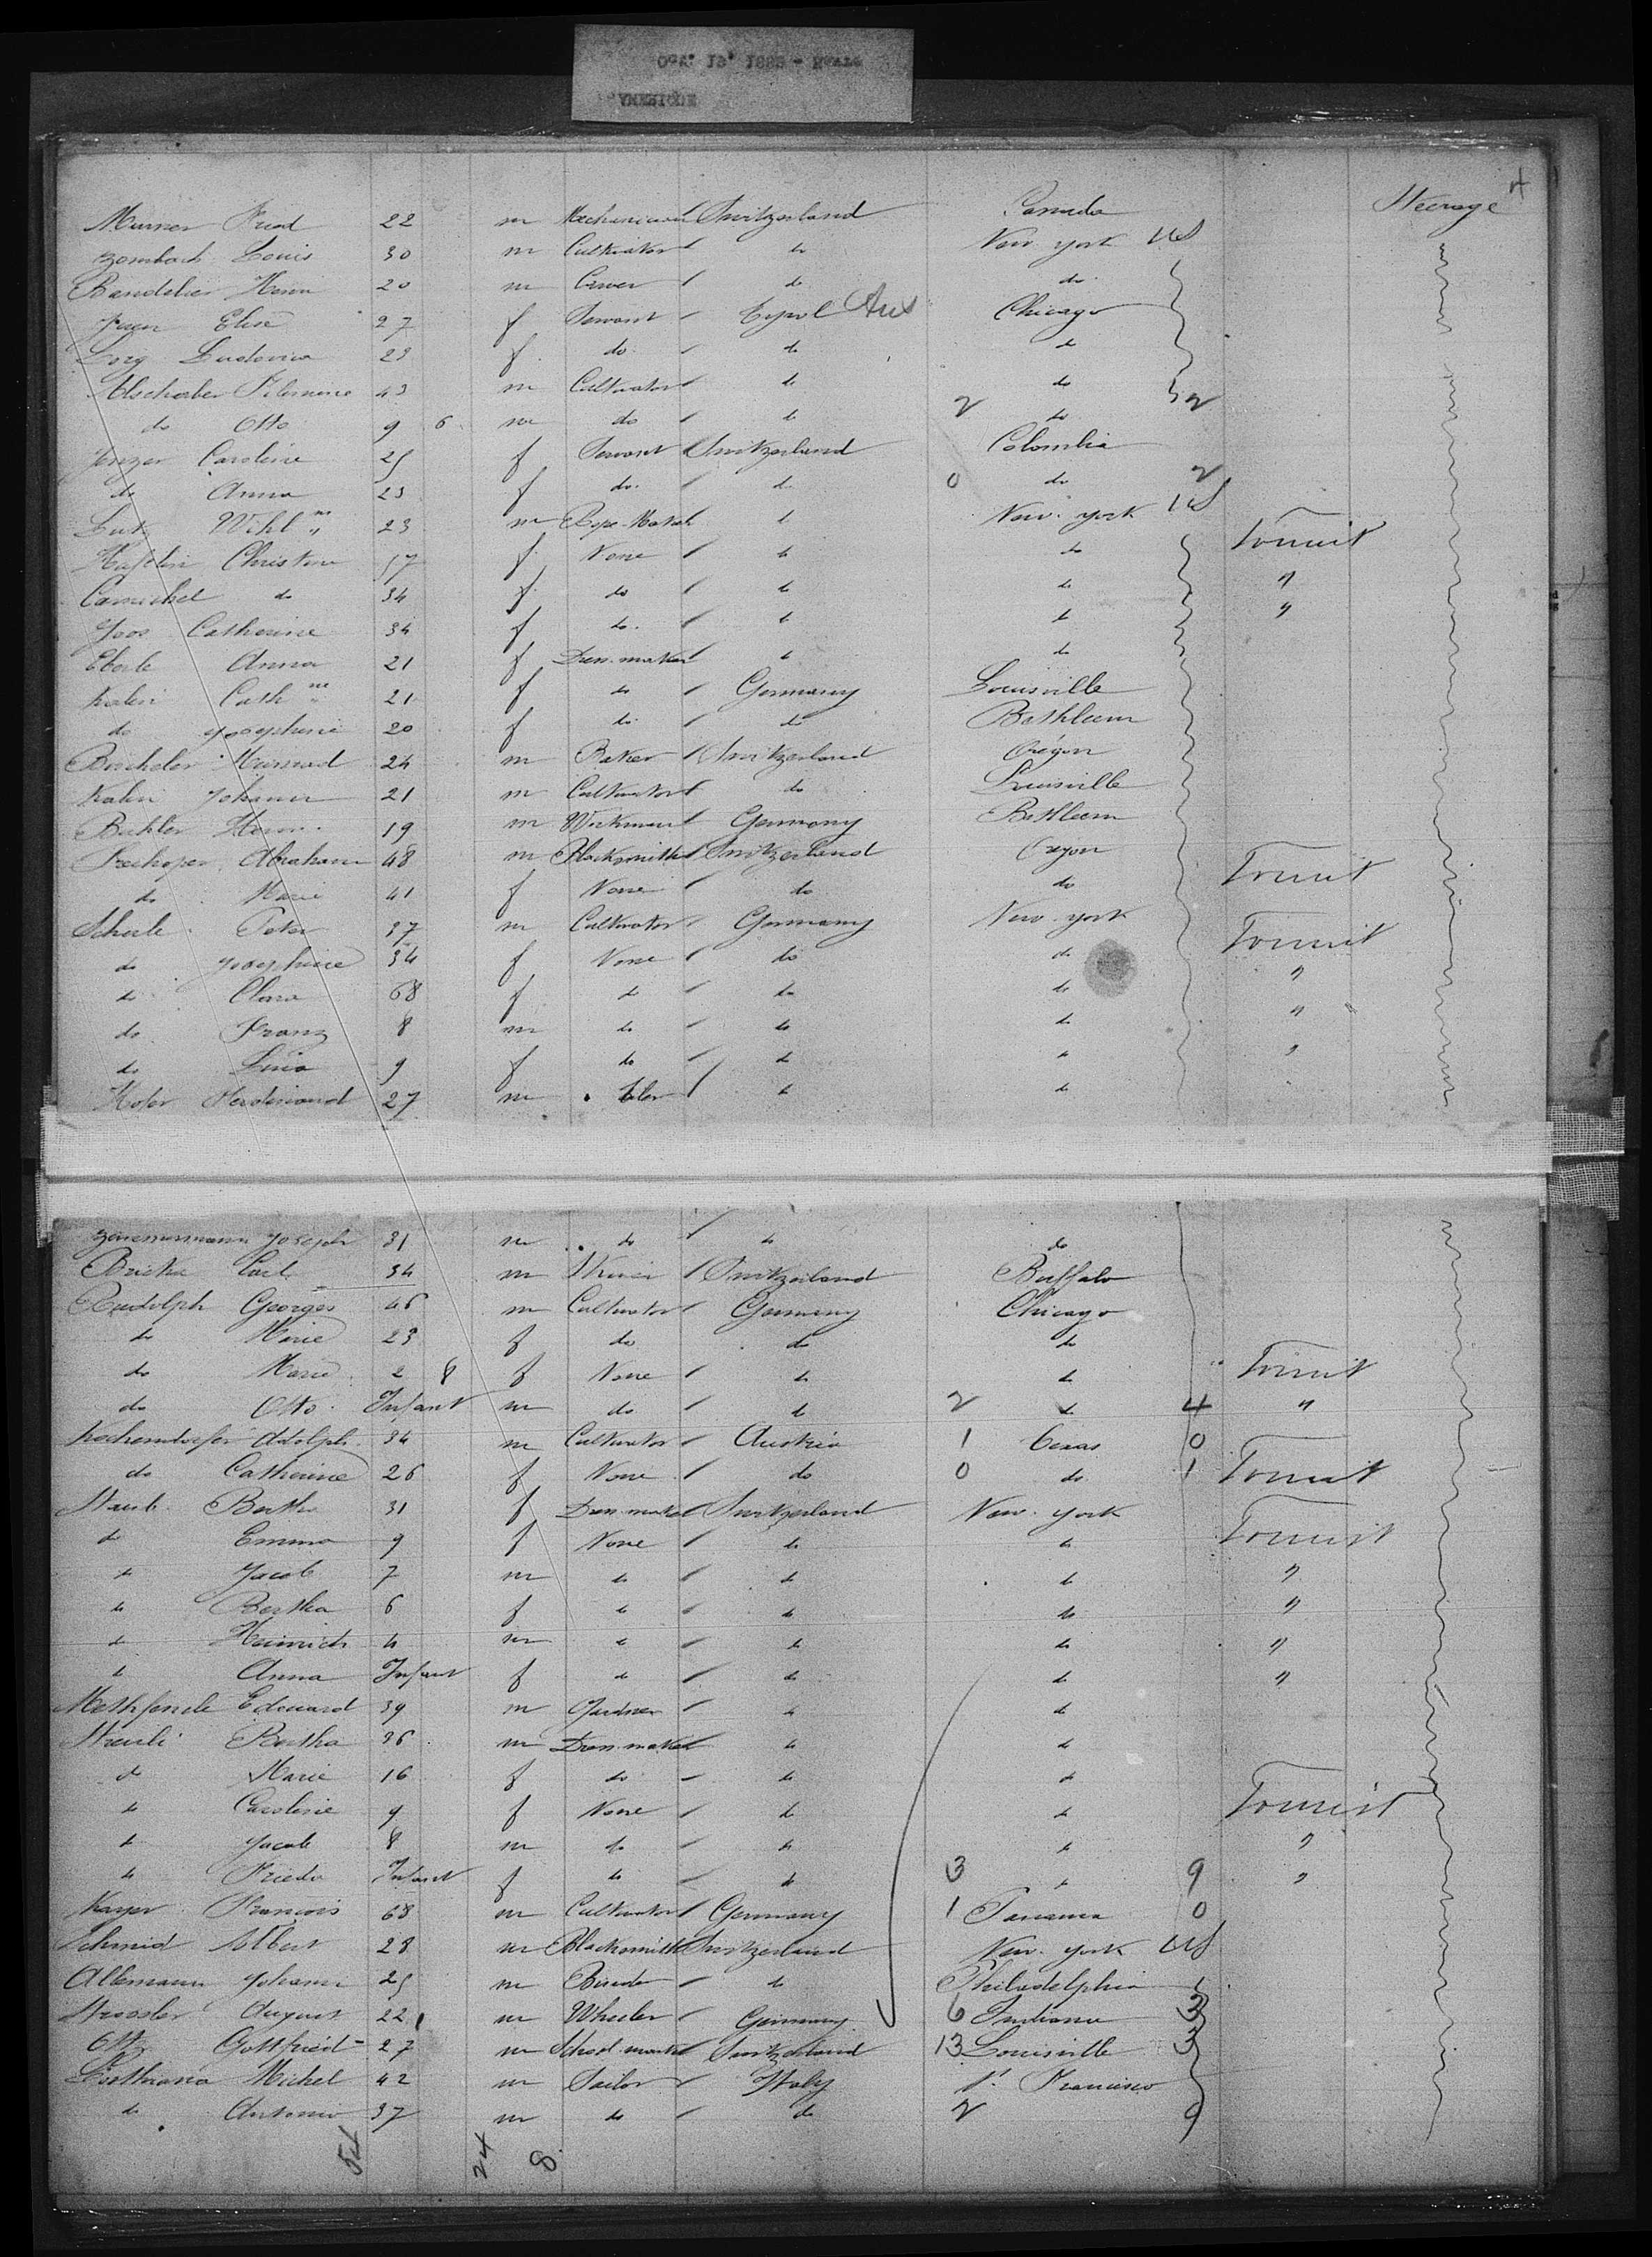 4
Murner Fred 22 m Mechanician Switzerland Canada Steerage
Zombach Louis 30 m Cultivator do New york US
Bandelier Henri 20 m do do
Elise 27 f Servant Tyrol Aus Chicago
Lorg Ludovica 23 f do do do
43 m Cultivator do do
do Otto 9 6 m do do 2 do 2
Jenzer Caroline 25 f Servant Switzerland Colombia
do Anna 23 f do do 0 do 2
Lutz Wilh m 23 m do New york US
Christine 57 f None do do Transit
Camichel do 34 f do do do "
Joos Catherine 34 f do do do "
Eberle Anna 21 f Dress maker do do
Kalin Cath ne 21 f do Germany Louisville
do Josephine 20 f do do Bethleem
Meinrad 24 m Baker Switzerland Oregon
Kalin Johann 21 m Cultivator do Louisville
Buhler Herm. 19 m Workman Germany Bethleem
Abraham 48 m Blacksmith Switzerland Oregon
do Marie 41 f None do do Transit
Scherle Peter 37 m Cultivator Germany New york
do Josephine 34 f None do do Transit
do Clara 68 f do do do "
do Franz 8 m do do do "
do Lina 9 f do do do "
Hofer Ferdinand 27 m do do
Zimmermann Joseph 31 m do do do
Carl 34 m Switzerland Buffalo
Rudolph Georges 46 m Cultivator Germany Chicago
do Marie 23 f do do do
do Marie 2 8 f None do do Transit
do Otto Infant m do do 2 do 4 "
Kochendorfer Adolph 34 m Cultivator Austria 1 Texas 0
do Catherine 26 f None do 0 do 1 Transit
Staub Bertha 31 f Dress maker Switzerland New york
do Emma 9 f None do do Transit
do Jacob 7 m do do do "
do Bertha 6 f do do do "
do Heinrich 4 m do do do "
do Anna Infant f do do do "
Methfessele Edouard 39 m Gardner do do
Streuli Bertha 36 m Dress maker do do
do Marie 16 f do do do
do Caroline 9 f None do do Transit
do Jacob 8 m do do do "
do Frieda Infant f do do 3 do 9 "
Kayser Francois 68 m Cultivator Germany 1 Panama 0
Schmid Albert 28 m Blacksmith Switzerland New york US
Allemann Johann 25 m Binder do Philadelphia
Strossler August 22 m Wheeler Germany 6 Indiana 3
Ott Gottfried 27 m School master Switzerland 13 Louisville 3
Michel 42 m Sailor Italy St Francisco
do Antonio 37 m do do 2 0
54 24 8